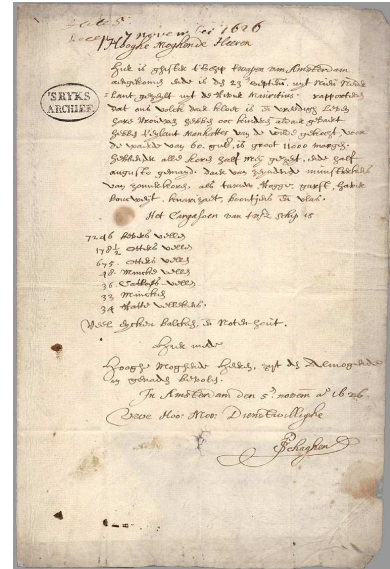 7 november 1626
'SRYKS
ARCHIEF
Hooghe Moghende Heeren
Hier is ghister t'Schip t'wapen van Amsterdam
aengekomen ende is den 23en septem. uyt Nieu Neder
lant gezeylt uyt de rivier Mauritius. rapporteren
dat ons volck daer kloec is en vreedigh leven
hare vrouwen hebben oock kinders aldaer gebaert
hebben t'eylant Manhattes van de wilde gekocht voor
de waerde van 60. guld. is groot 11000 morgen.
hebbende alle koren half mey gezeyt, ende half
augusto gemayd. daer van zeyndende munsterkens
van zomerkoren, als tarwe rogge, garst, haver
boucweyt, knarizaet, boontjens en vlas.
Het Cargasoen van tvsz schip is
7246 Bevers vellen
178½ Otters vellen
675. Otters vellen
48. Mincke vellen
36. Catloes vellen
33 Mincken
34 Ratte vellekens.
Veel eycken balcken, en Noten-hout.
Hier mede
Hooghe Moghende Heeren, zyt den Almogende
in genaden bevolen.
In Amsterdam den 5en novem. ao 1626.
Uwe Hoo: Moo: Dienstwillighe
P Schaghen